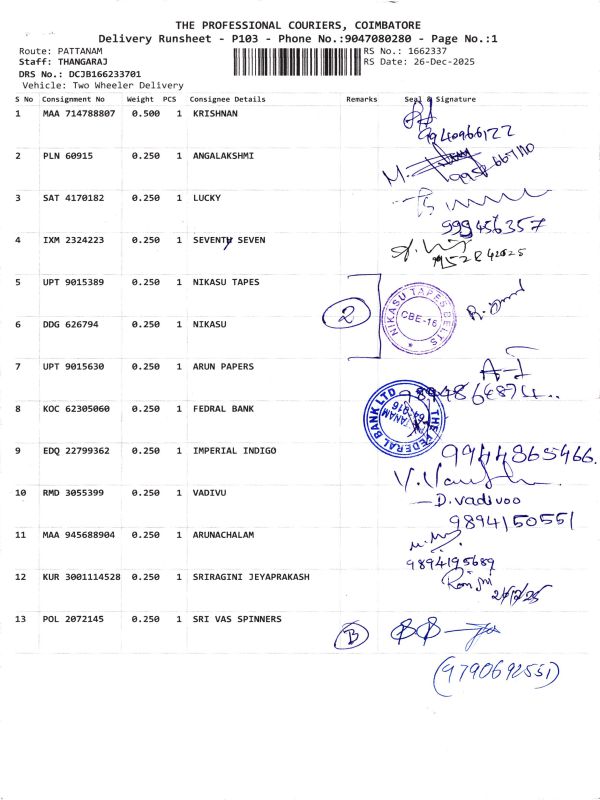 THE PROFESSIONAL COURIERS, COIMBATORE
Delivery Runsheet - P103 - Phone No.:9047080280 - Page No.:1
Route: PATTANAM RS No.: 1662337
Staff: THANGARAJ RS Date: 26-Dec-2025
DRS No.: DCJB166233701
Vehicle: Two Wheeler Delivery
S No Consignment No Weight PCS Consignee Details Remarks Seal & Signature
1 MAA 714788807 0.500 1 KRISHNAN
9940966122
2 PLN 60915 0.250 1 ANGALAKSHMI
3 SAT 4170182 0.250 1 LUCKY
999456357
4 IXM 2324223 0.250 1 SEVENTY SEVEN
5 UPT 9015389 0.250 1 NIKASU TAPES
2 NIKASU TAPES BELTS CBE-16
6 DDG 626794 0.250 1 NIKASU
7 UPT 9015630 0.250 1 ARUN PAPERS
8 KOC 62305060 0.250 1 FEDRAL BANK
THE FEDERAL BANK LTD
9 EDQ 22799362 0.250 1 IMPERIAL INDIGO
9944865466.
10 RMD 3055399 0.250 1 VADIVU
D. vadivoo
9894150551
11 MAA 945688904 0.250 1 ARUNACHALAM
9894195689
12 KUR 3001114528 0.250 1 SRIRAGINI JEYAPRAKASH
13 POL 2072145 0.250 1 SRI VAS SPINNERS
B
(9790692551)